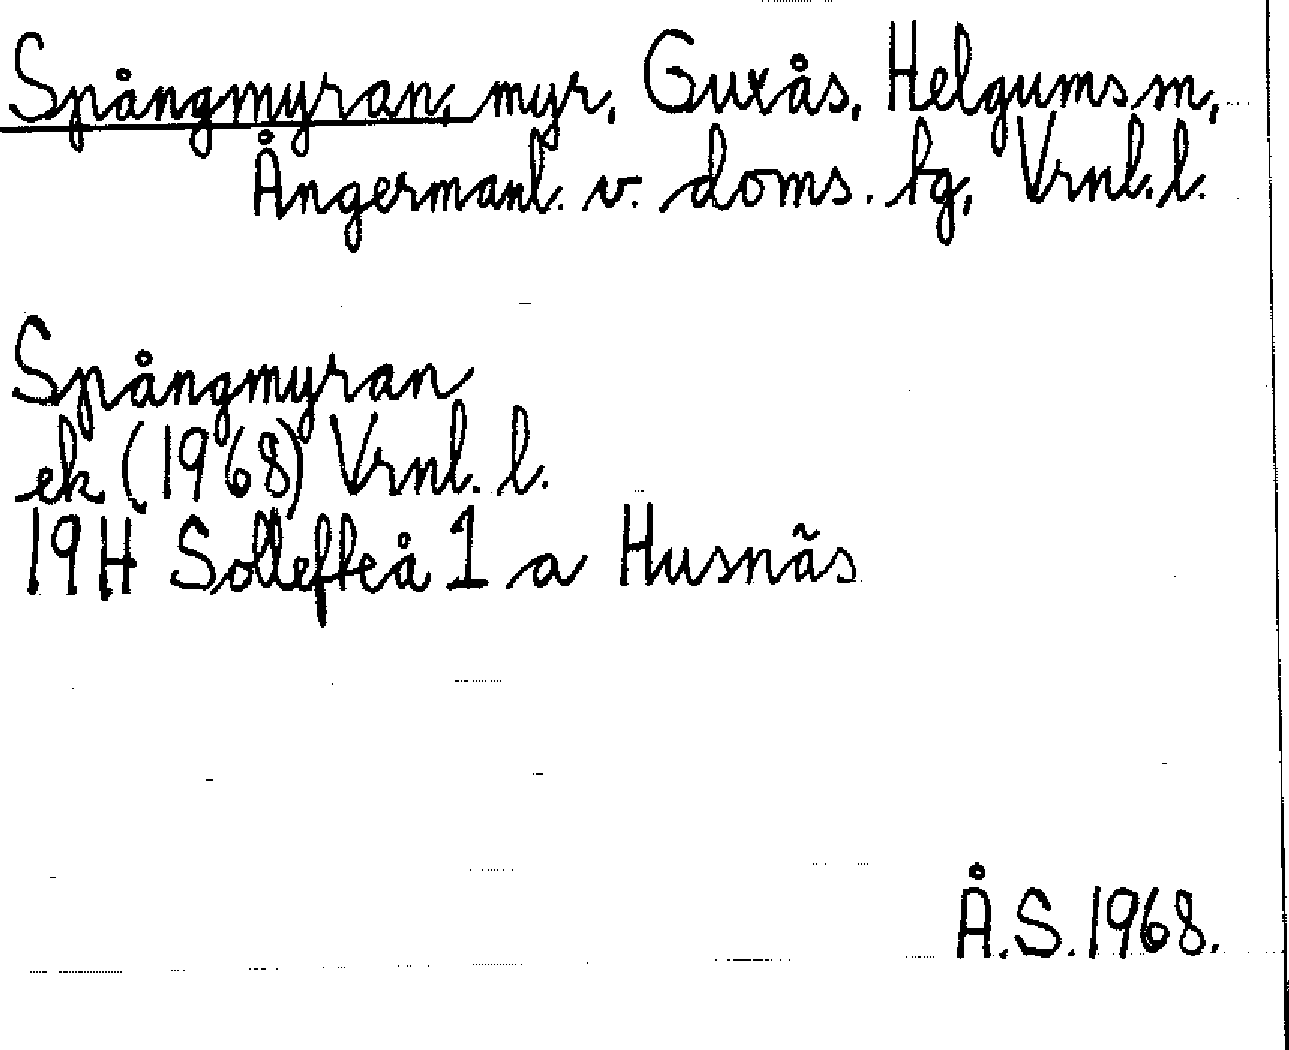 Spångmyran, myr, Guxås, Helgums sn,
Ångermanl. v. doms. tg, Vrnl. l.
Spångmyran
ek (1968) Vrnl. l.
19H Sollefteå 1 a Husnäs
Å.S. 1968.